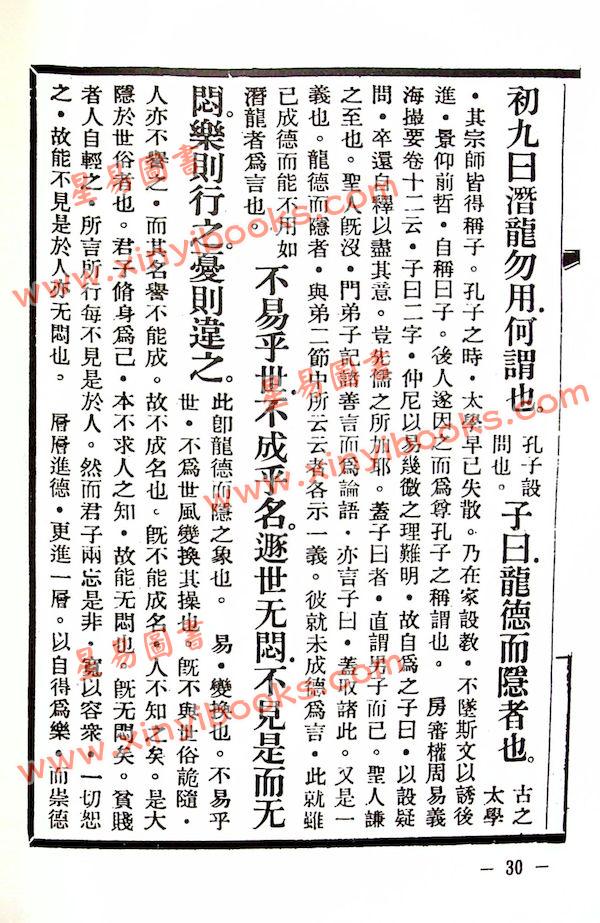 初九曰潛龍勿用.何謂也。孔子設問也。子曰.龍德而隱者也。古之太學
・其宗師皆得稱子。孔子之時・太學早已失散。乃在家設教・不墜斯文以誘後
進・景仰前哲・自稱曰子。後人遂因之而爲尊孔子之稱謂也。　房審權周易義
海撮要卷十二云・子曰二字・仲尼以易幾微之理難明・故自爲之子曰・以設疑
問・卒還自釋以盡其意。豈先儒之所加耶。蓋子曰者・直謂男子而已。聖人謙
之至也。聖人旣沒・門弟子記諸善言而爲論語・亦言子曰・蓋取諸此。又是一
義也。龍德而隱者・與弟二節中所云云者各示一義。彼就未成德爲言・此就雖
已成德而能不用如潛龍者爲言也。不易乎世.不成乎名。遯世无悶.不見是而无
悶。樂則行之.憂則違之。此卽龍德而隱之象也。　易・變換也。不易乎世・不爲世風變換其操也。旣不與世俗詭隨・
人亦不譽之・而其名譽不能成。故不成名也。旣不能成名・人不知之矣。是大
隱於世俗者也。君子脩身爲己・本不求人之知・故能无悶也。旣无悶矣。貧賤
者人自輕之・所言所行每不見是於人。然而君子兩忘是非・寬以容衆・一切恕
之・故能不見是於人亦无悶也。　層層進德・更進一層。以自得爲樂・而崇德
－30－
星易圖書
www.xinyibooks.com
星易圖書
www.xinyibooks.com
星易圖書
www.xinyibooks.com
星易圖書
www.xinyibooks.com